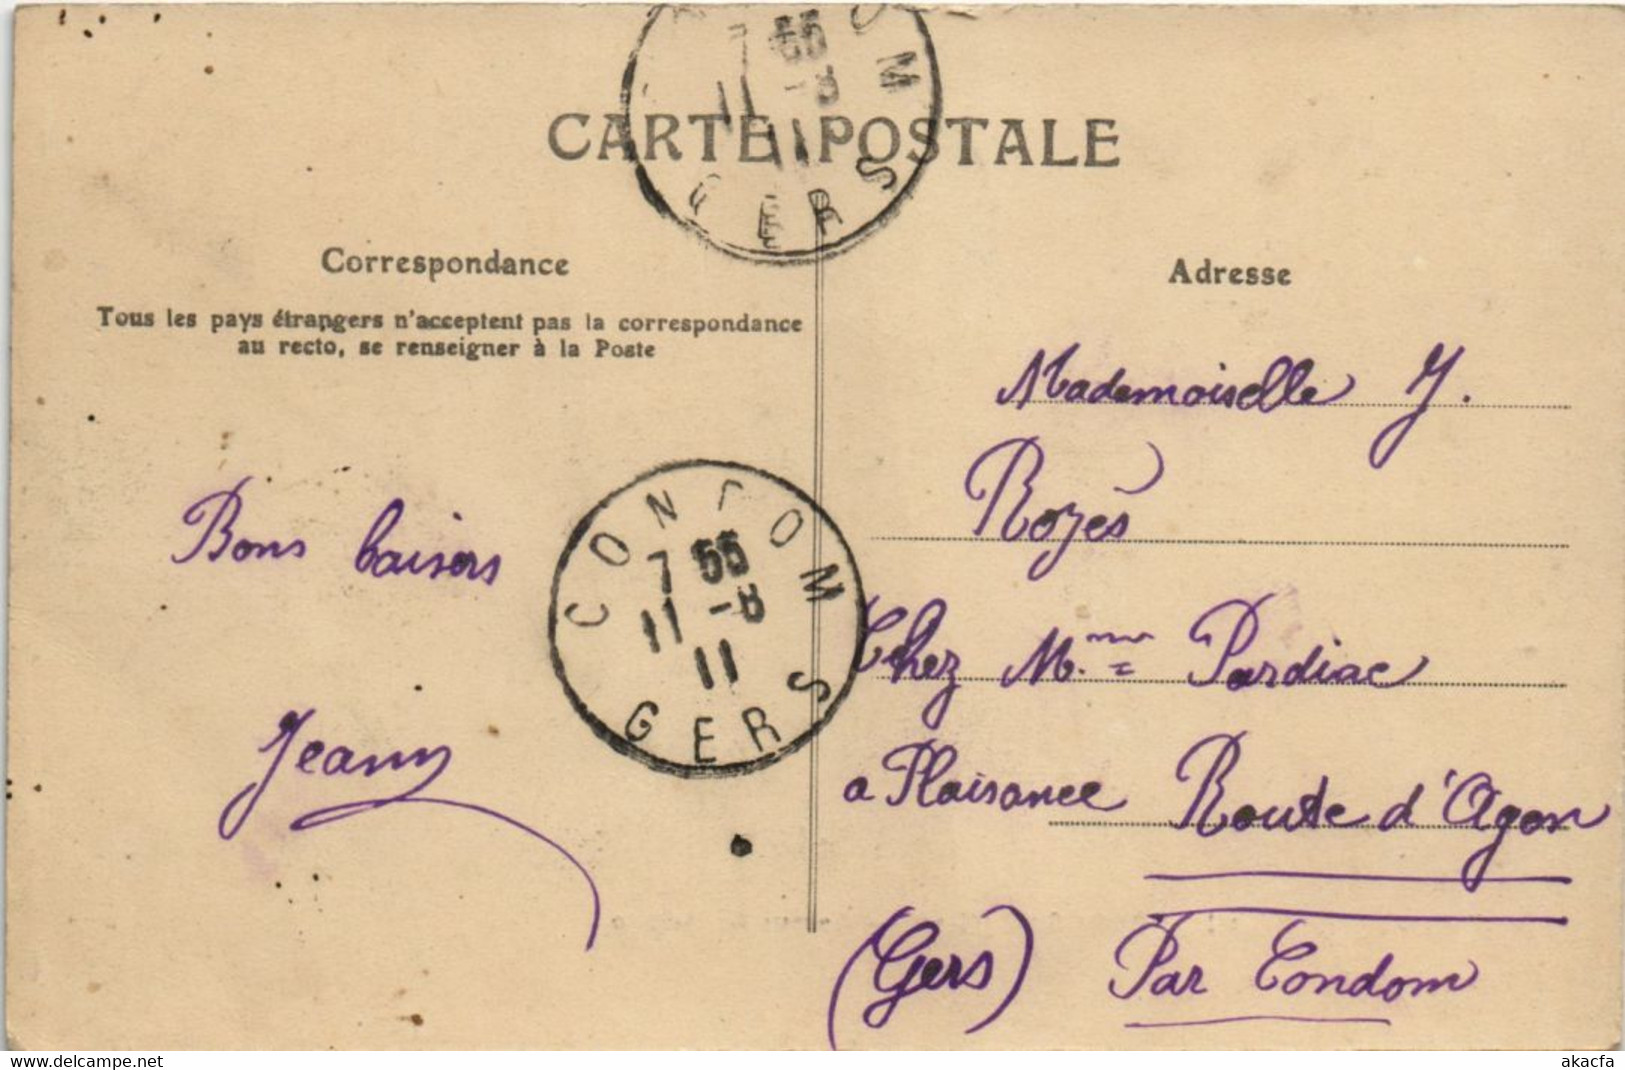 CARTE POSTALE
OM
7 55
11 -8
11
GERS
Correspondance
Tous les pays étrangers n'acceptent pas la correspondance
au recto, se renseigner à la Poste
Bons baisers
Jeanny
CONDOM
7 55
11 -8
11
GERS
Adresse
Mademoiselle J.
Rozès
Chez Mme Pardiac
a Plaisance Route d'Agen
(Gers) Par Condom
delcampe.net
akacfa